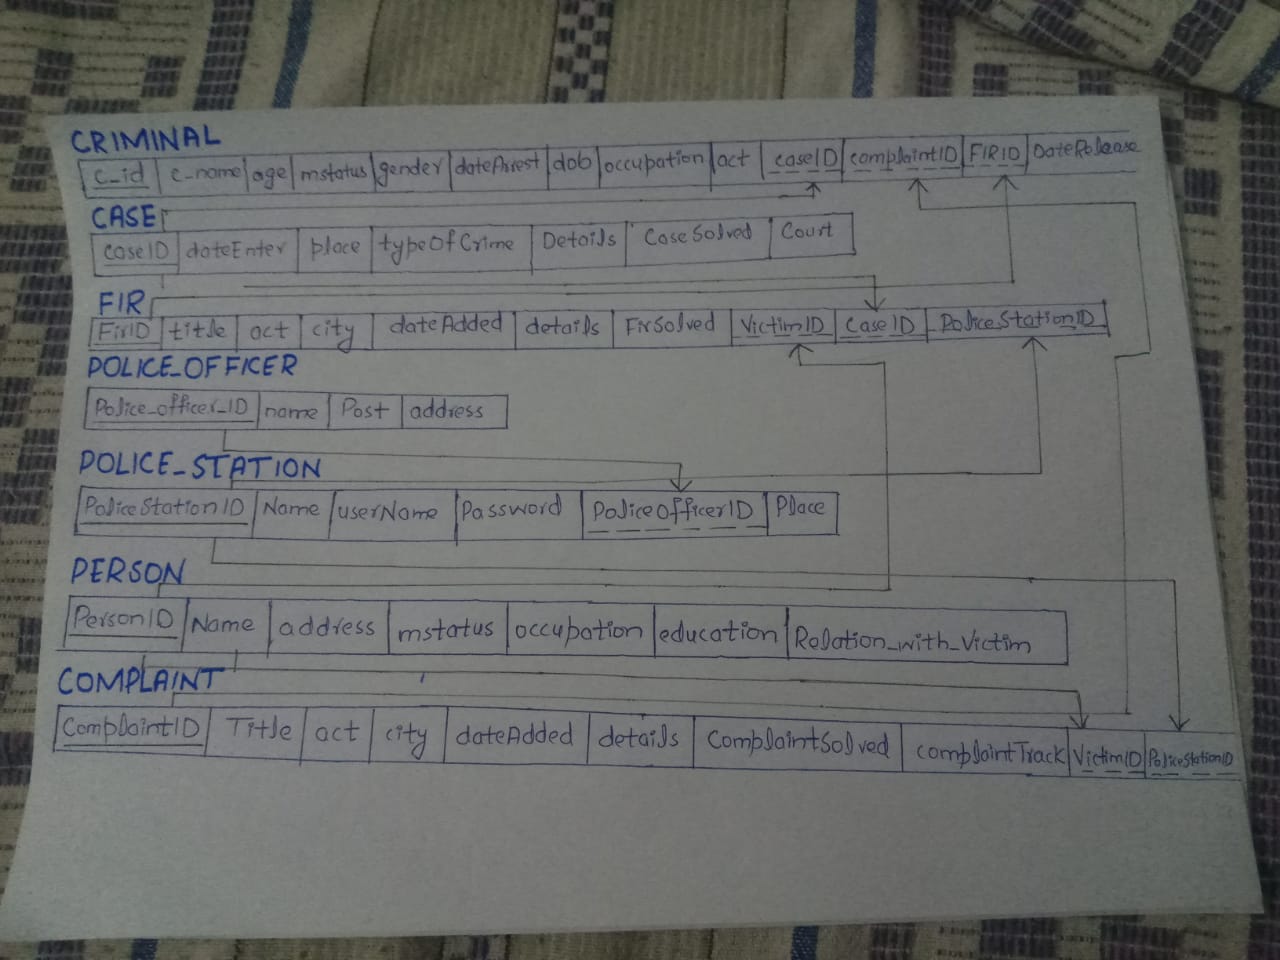 CRIMINAL
c_id c-name age mstatus gender dateArrest dob occupation act caseID complaintID FIRID DateRelease
CASE
caseID dateEnter place typeOfCrime Details CaseSolved Court
FIR
FirID title act city dateAdded details FirSolved VictimID CaseID PoliceStationID
POLICE_OFFICER
Police_officer_ID name Post address
POLICE_STATION
PoliceStationID Name userName Password PoliceOfficerID Place
PERSON
PersonID Name address mstatus occupation education Relation_with_Victim
COMPLAINT
ComplaintID Title act city dateAdded details ComplaintSolved complaintTrack VictimID PoliceStationID